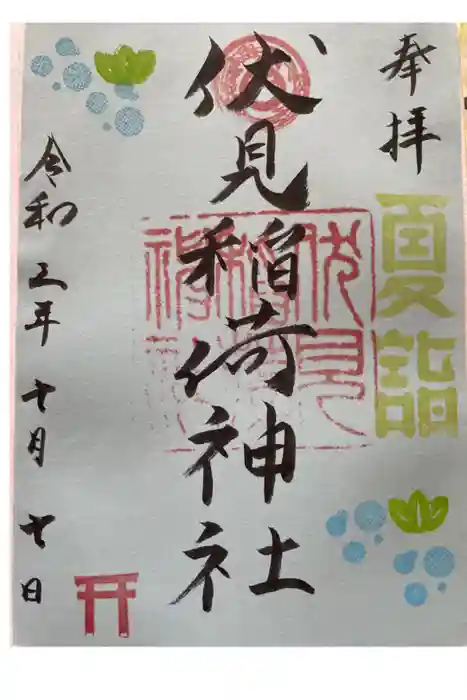 奉拝
夏詣
伏見稲荷神社
伏見
令和五年七月七日